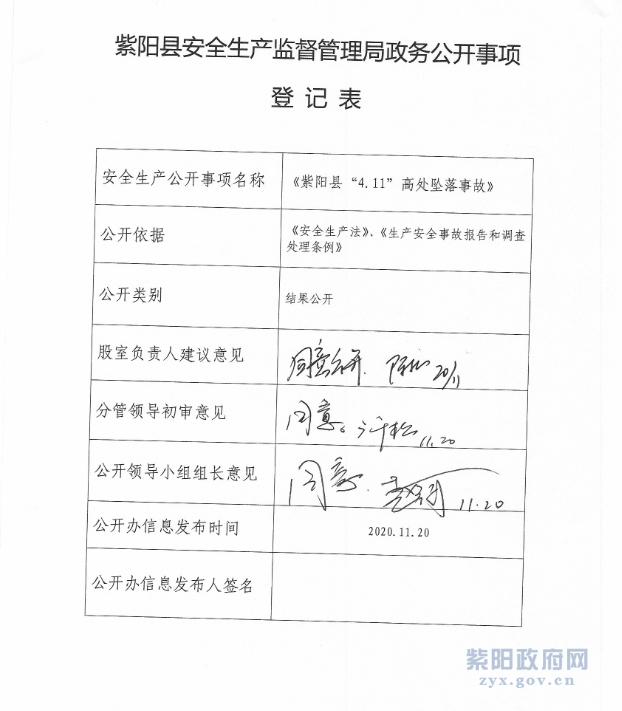 紫阳县安全生产监督管理局政务公开事项
登记表
安全生产公开事项名称
《紫阳县“4.11”高处坠落事故》
公开依据
《安全生产法》、《生产安全事故报告和调查
处理条例》
公开类别
结果公开
股室负责人建议意见
同意公开. 20/11
分管领导初审意见
同意。 11.20
公开领导小组组长意见
同意. 11.20
公开办信息发布时间
2020.11.20
公开办信息发布人签名
紫阳政府网
zyx.gov.cn